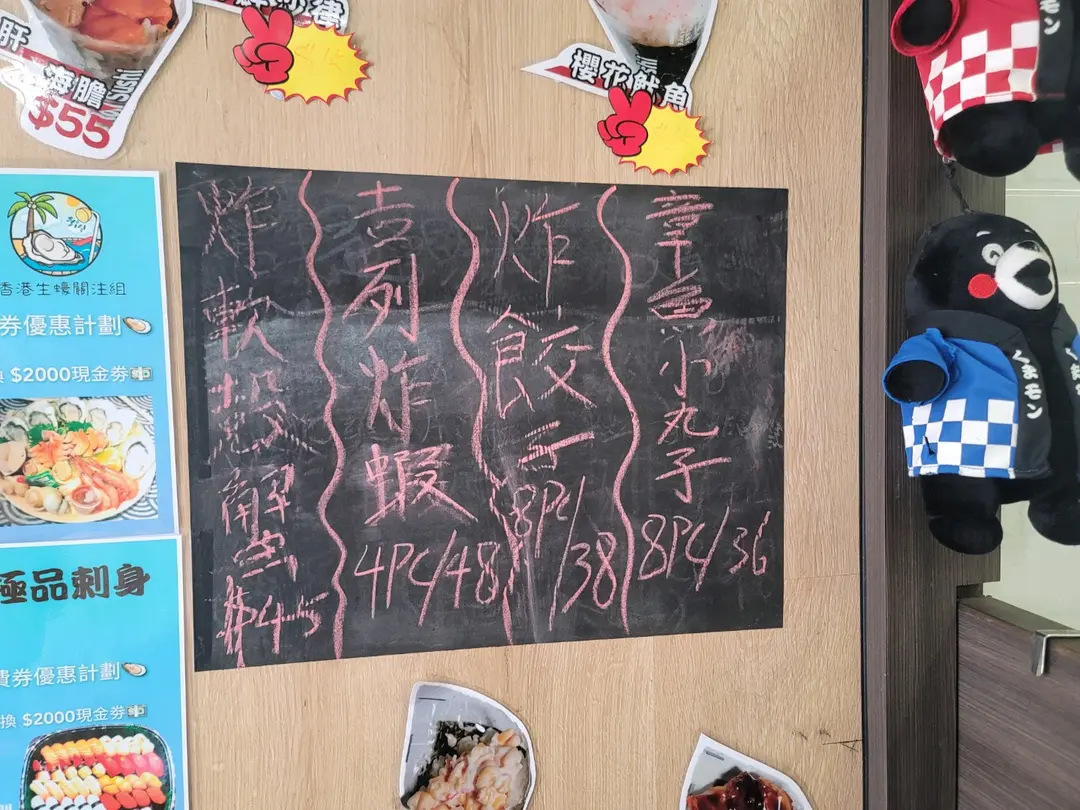 肝
海膽
$55
櫻花魷魚
香港生蠔關注組
券優惠計劃
$2000現金券
極品刺身
費券優惠計劃
換 $2000現金券
章魚小丸子
8PC/36
炸餃子
8PC/38
吉列炸蝦
4PC/48
炸軟殼蟹
$45
くまモン
モン